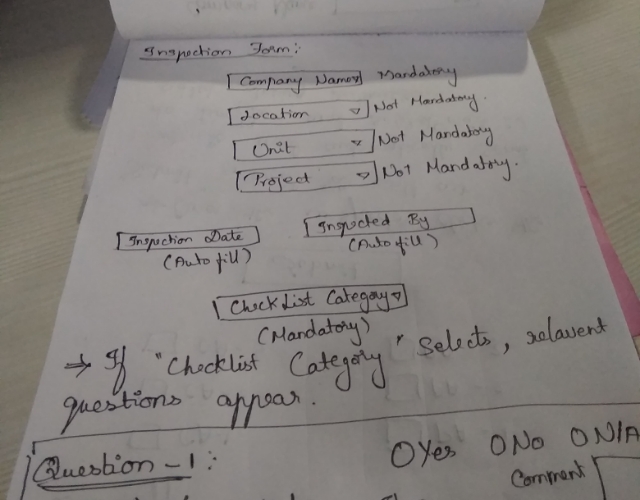 Inspection Form:
Company Name Mandatory
Location Not Mandatory.
Unit Not Mandatory
Project Not Mandatory.
Inspection Date Inspected By
(Auto fill) (Auto fill)
CheckList Category
(Mandatory)
→ If "Checklist Category" Selects, relavent
questions appear.
Question - 1: O Yes O No O N/A
Comment